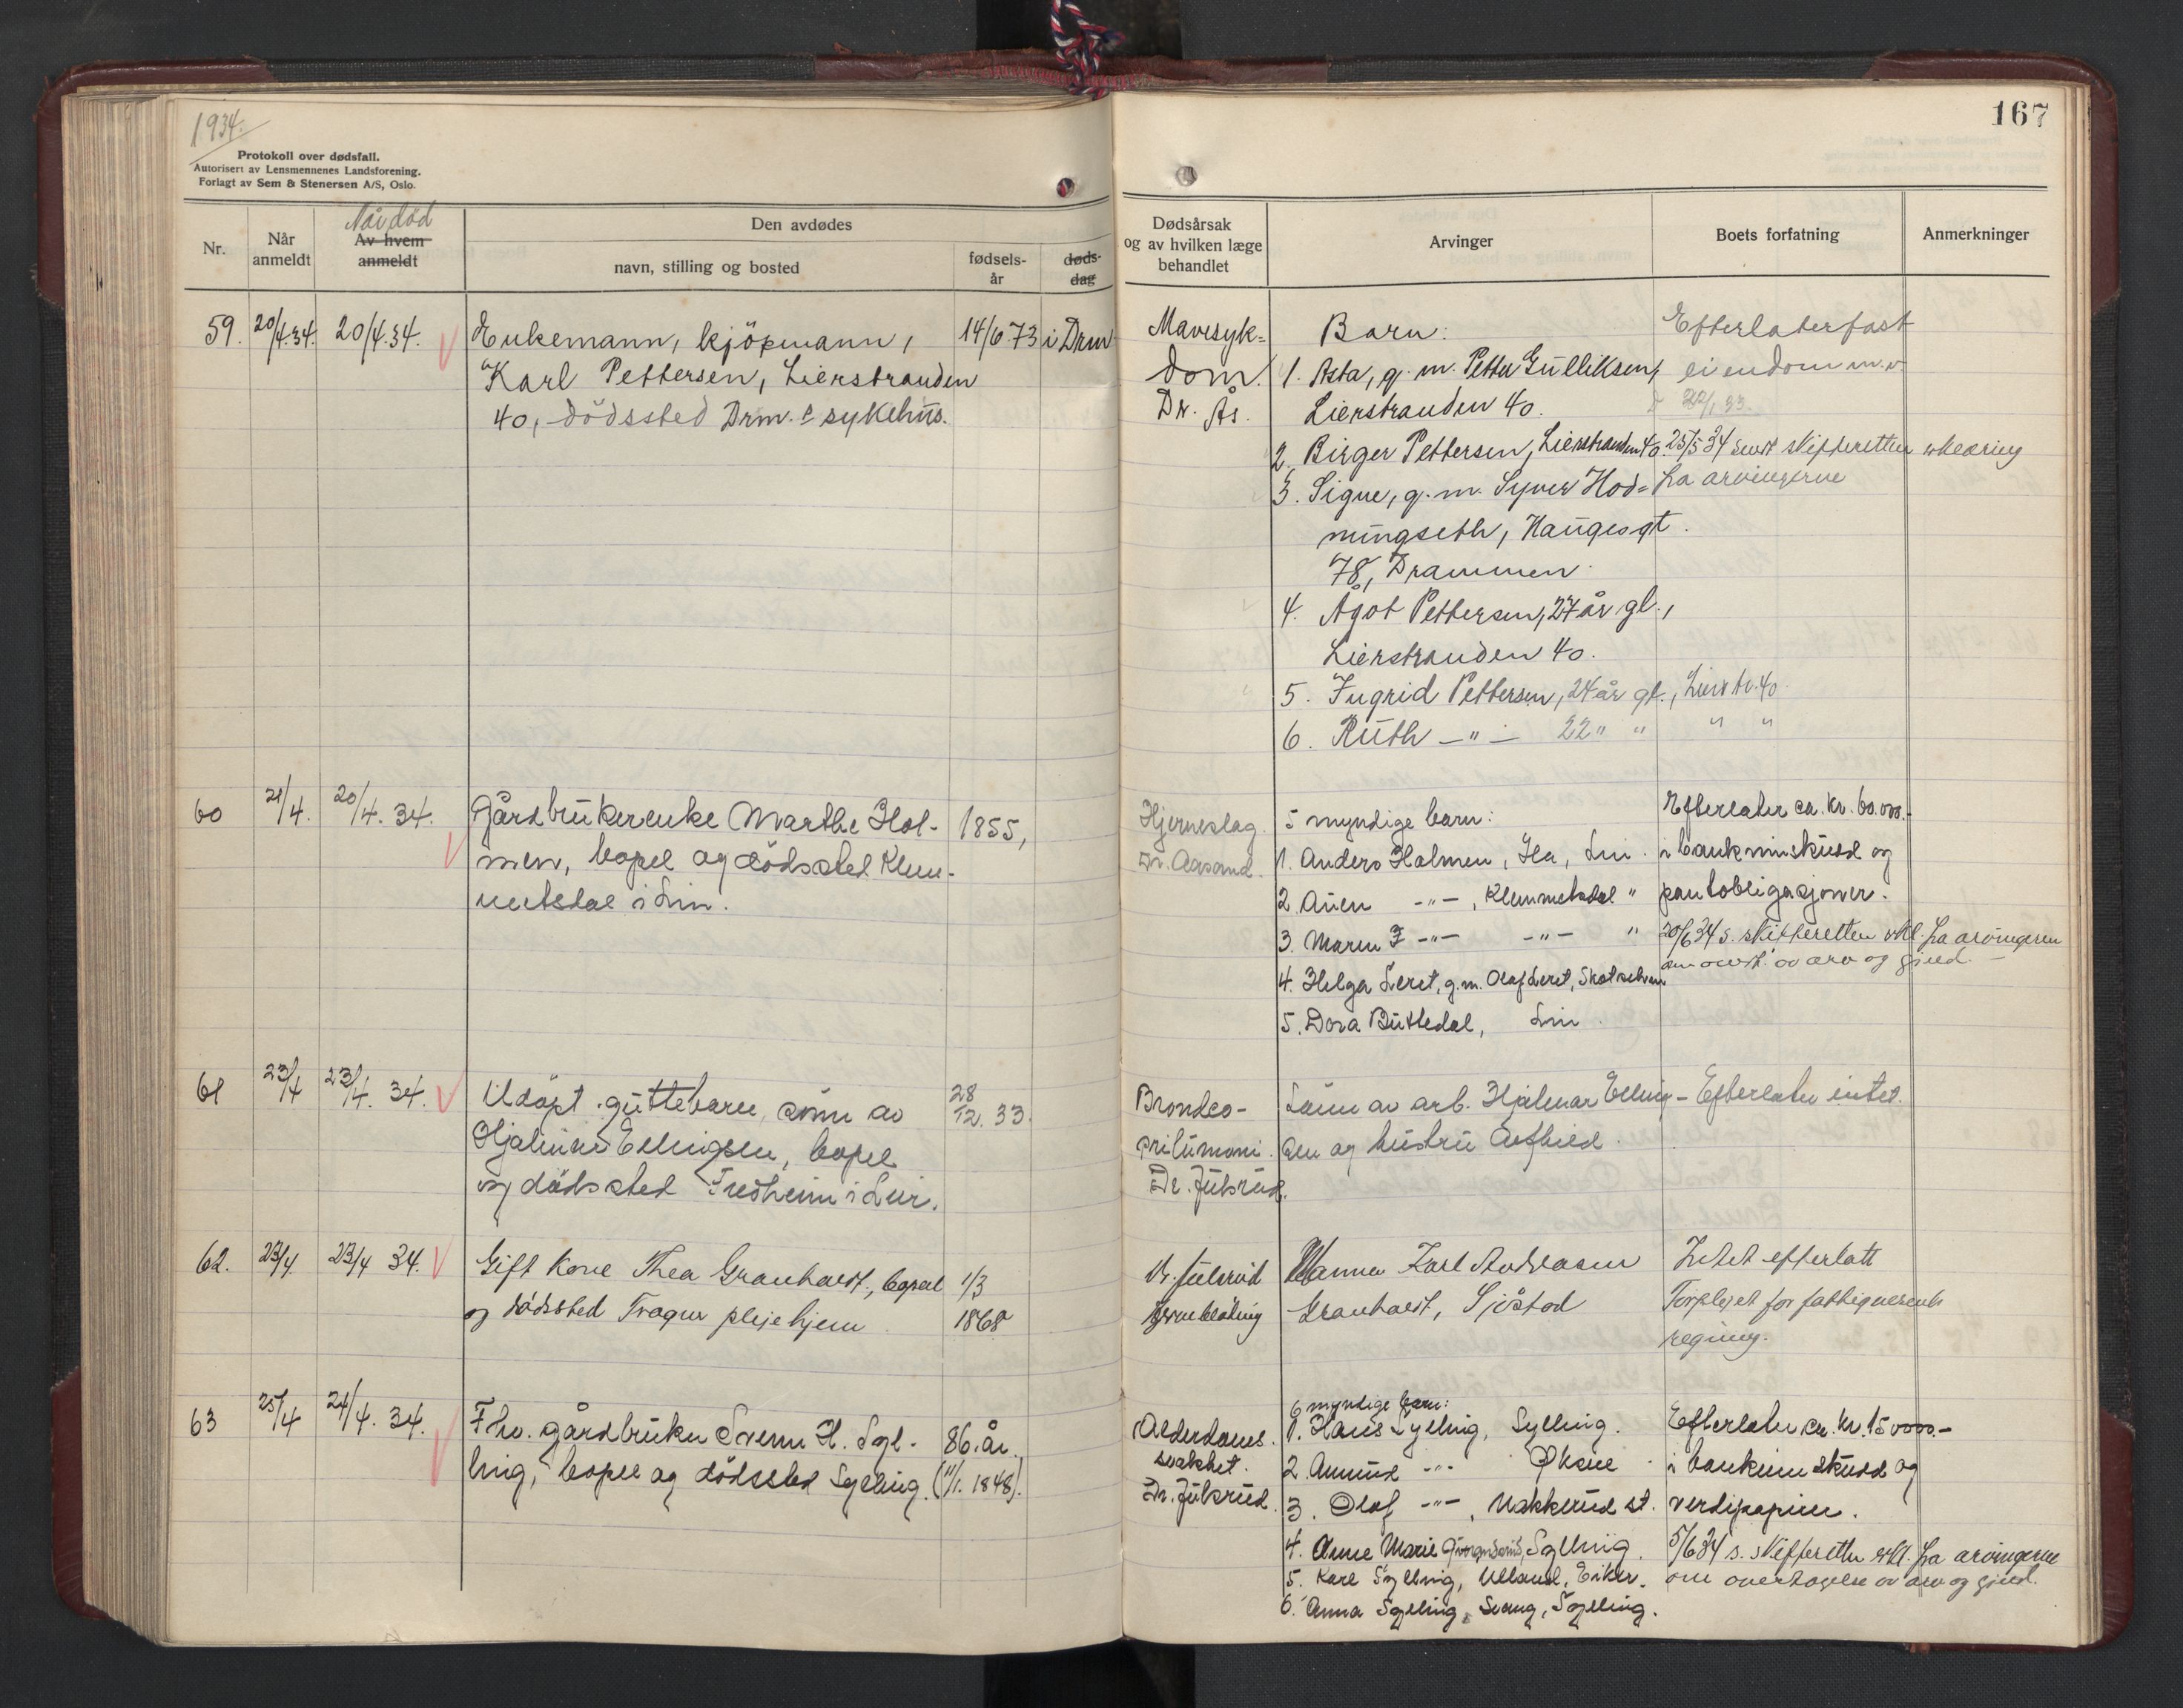 1934.
Protokoll over dødsfall.
Autorisert av Lensmennenes Landsforening.
Forlagt av Sem & Stenersen A/S, Oslo.
167
Nr.
Når anmeldt
Når död
Av hvem anmeldt
Den avdødes
navn, stilling og bosted
fødsels-
år
døds-
dag
Dødsårsak
og av hvilken læge
behandlet
Arvinger
Boets forfatning
Anmerkninger
59. 20/4.34. 20/4.34. Enkemann, kjöpmann, 14/6 73 i Drm
Karl Pettersen, Lierstranden
40, dödssted Drm.s sykehus.
Mavesyk=
dom.
Dr. Ås.
Barn:
1. Asta, g. m. Petter Gulliksen,
Lierstranden 40.
2. Birger Pettersen, Lierstranden 40.
3. Signe, g. m. Syver Hod=
ningseth, Haugesgt.
78, Drammen.
4. Ågot Pettersen, 27 år gl.,
Lierstranden 40.
5. Ingrid Pettersen, 24 år gl., Lierstr. 40.
6. Ruth —"— 22 " " " "
Efterlater fast
eiendom m.v.
25/5 34 sendt skifteretten erklæring
fra arvingerne
60 21/4. 20/4. 34. Gårdbrukerenke Marthe Hol- 1855,
men, bopel og dödssted Klem-
metsdal i Lier.
Hjerneslag.
Dr. Aasand.
5 myndige barn:
1. Anders Holmen, Ila, Lier.
2. Auen —"—, Klemmetsdal "
3. Maren F —"— —"— "
4. Helga Leret, g.m. Olaf Leret, Skotselven
5. Dora Buttedal, Lier.
Efterlater ca. kr. 60.000.-
i bankinnskudd og
pantobligasjoner.
20/6 34 s. skifteretten erkl. fra arvingeren
om overt. av arv og gjeld.
61 23/4 23/4. 34. Udöpt guttebarn, sönn av 28/12. 33.
Hjalmar Ellingsen, bopel
og dödssted Fredheim i Lier.
Bronko-
pneumoni.
Dr. Julsrud.
Sönn av arb. Hjalmar Elling-
sen og hustru Asthild.
Efterlater intet.
62. 23/4. 23/4 34. Gift kone Thea Granholdt, bopæl 1/3
og dödssted Fragur pleiehjem 1868
Dr. Julsrud
Hjerneblödning
Mann Karl Andreasen
Granholdt, Sjåstad
Intet efterlatt
Forpleiet for fattigvesenets
regning.
63 25/4 24/4. 34. Fhv. gårdbruker Svenn H. Syl- 86 år.
ling, bopel og dödssted Sylling. (11/1. 1848).
Alderdoms.
svakhet.
Dr. Julsrud.
6 myndige barn:
1. Hans Sylling, Sylling.
2. Amund —"— Öksne
3. Olaf —"—, Nakkerud st.
4. Anne Marie Sylling.
5. Karl Sylling, Ulland, Eiker.
6. Anna Sylling, Svang, Sylling.
Efterlater ca. kr. 15 0000.-
i bankinnskudd og
verdipapirer.
5/6 34 s. skifteretten erkl. fra arvingerne
om overtagelse av arv og gjeld.